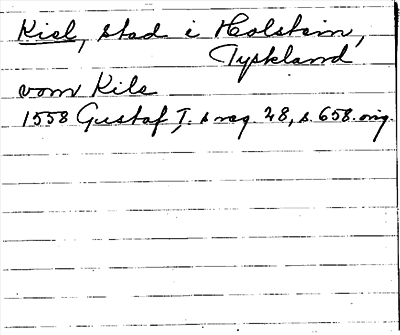 Kiel, stad i Holstein,
Tyskland
vom Kile
1558 Gustaf I:s reg. 28, s. 658. orig.